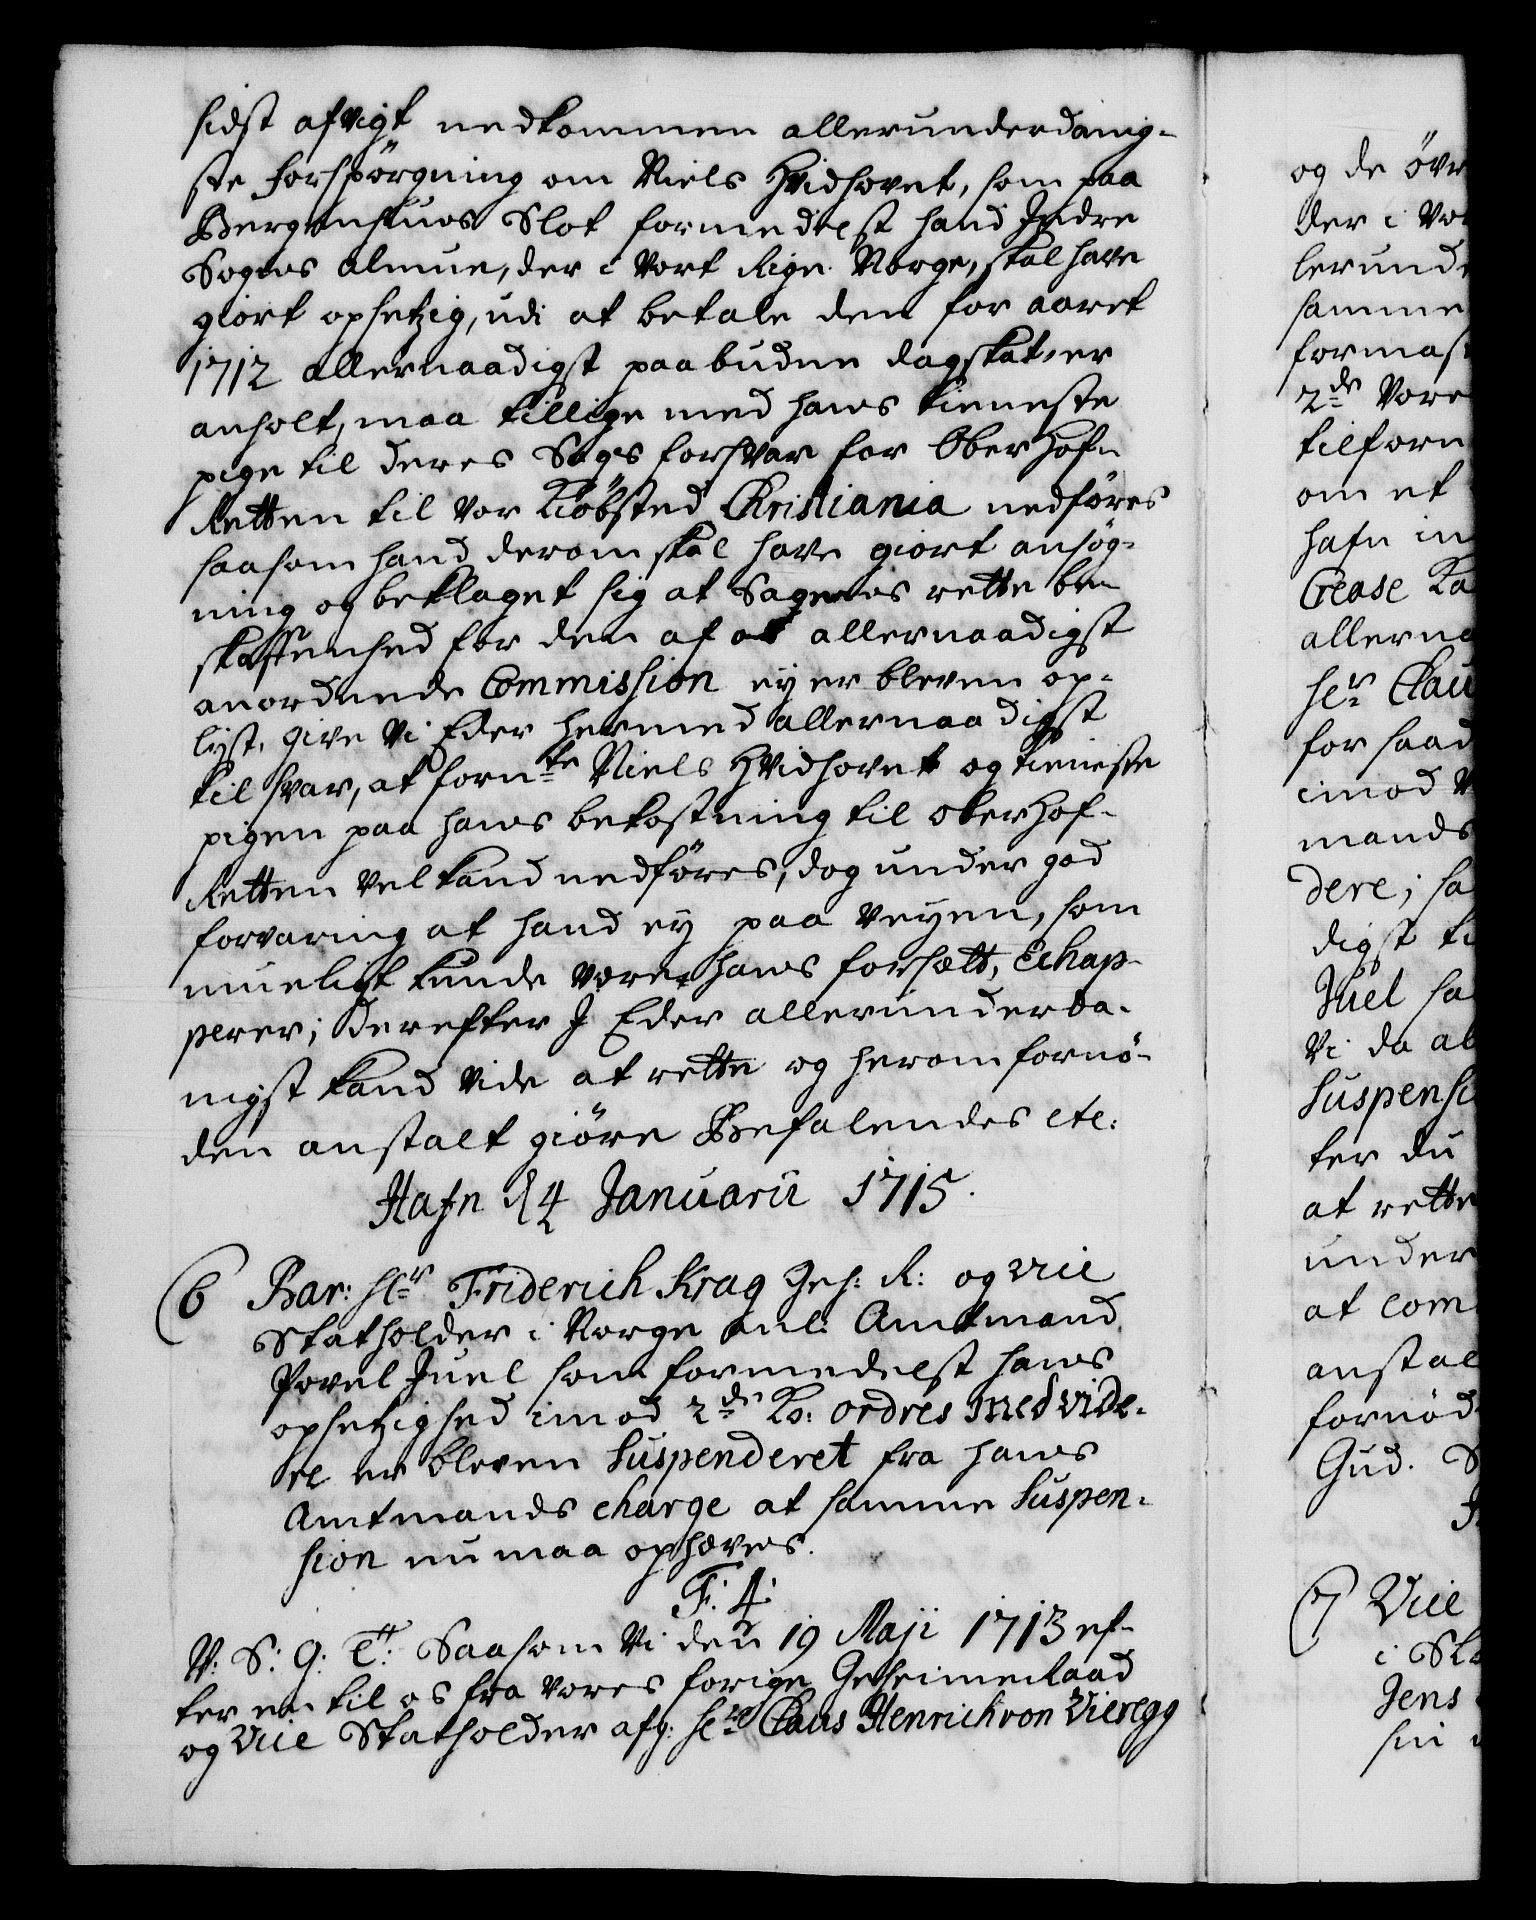 sidst afvigt nedkommen allerunderdanig-
ste forspörgning om Niels Hvidhovet, som paa
Bergenhuus Slot formedelst hand Indre
Sogns almue, der i Vort Rige Norge, skal have
giort opsetzig, udi at betale den for aaret
1712 allernaadigst paabudne dagskat, er
anholt, maa tillige med hans tieneste
pige til deres Sags forsvar for Ober Hof-
Retten til vor Kiöbsted Christiania nedföres
saasom hand derom skal have giort ansög-
ning og beklaget sig at Sagens rette be-
skaffenhed for den af os allernaadigst
anordnede Commission ey er bleven op-
lyst, give Vi Eder hermed allernaadigst
til svar, at fornte Niels Hvidhovet og tieneste
pigen paa hans bekostning til ober Hof-
Retten vel kand nedföres, dog under god
forvaring at hand ey paa veyen, som
mueligt kunde være hans forsætt, Echap-
perer; derefter I Eder allerunderda-
nigst kand vide at rette og herom fornö-
den anstalt giöre Befalendes etc:
Hafn d 4 Januarii 1715.
6 Bar: Hr Friderich Krag Geh: R: og vice
Statholder i Norge anl: Amtmand
Povel Juel som formedelst hans
opsetzighed imod 2de Ko: ordres med vide-
re er bleven Suspenderet fra hans
Amtmands charge at samme Suspen-
sion nu maa ophæves.
F: 4:
V: S: G: T: Saasom Vi den 19 Maji 1713 ef-
ter en til os fra vores forige Geheimeraad
og Vice Statholder afg: Hr Claus Henrich von Vieregg
og de övr
der i Vor
lerunde
samme
formast
2de Vore
tilforn
om et
hafn in
Crease Ka
allerna
Hr Clau
for saad
imod V
mands
dere; sa
digst ti
Juel sa
Vi da al
Suspensi
ter du
at rette
under
at com
anstal
fornöd
Gud. S
7 Vice
i Sta
Jens
sin